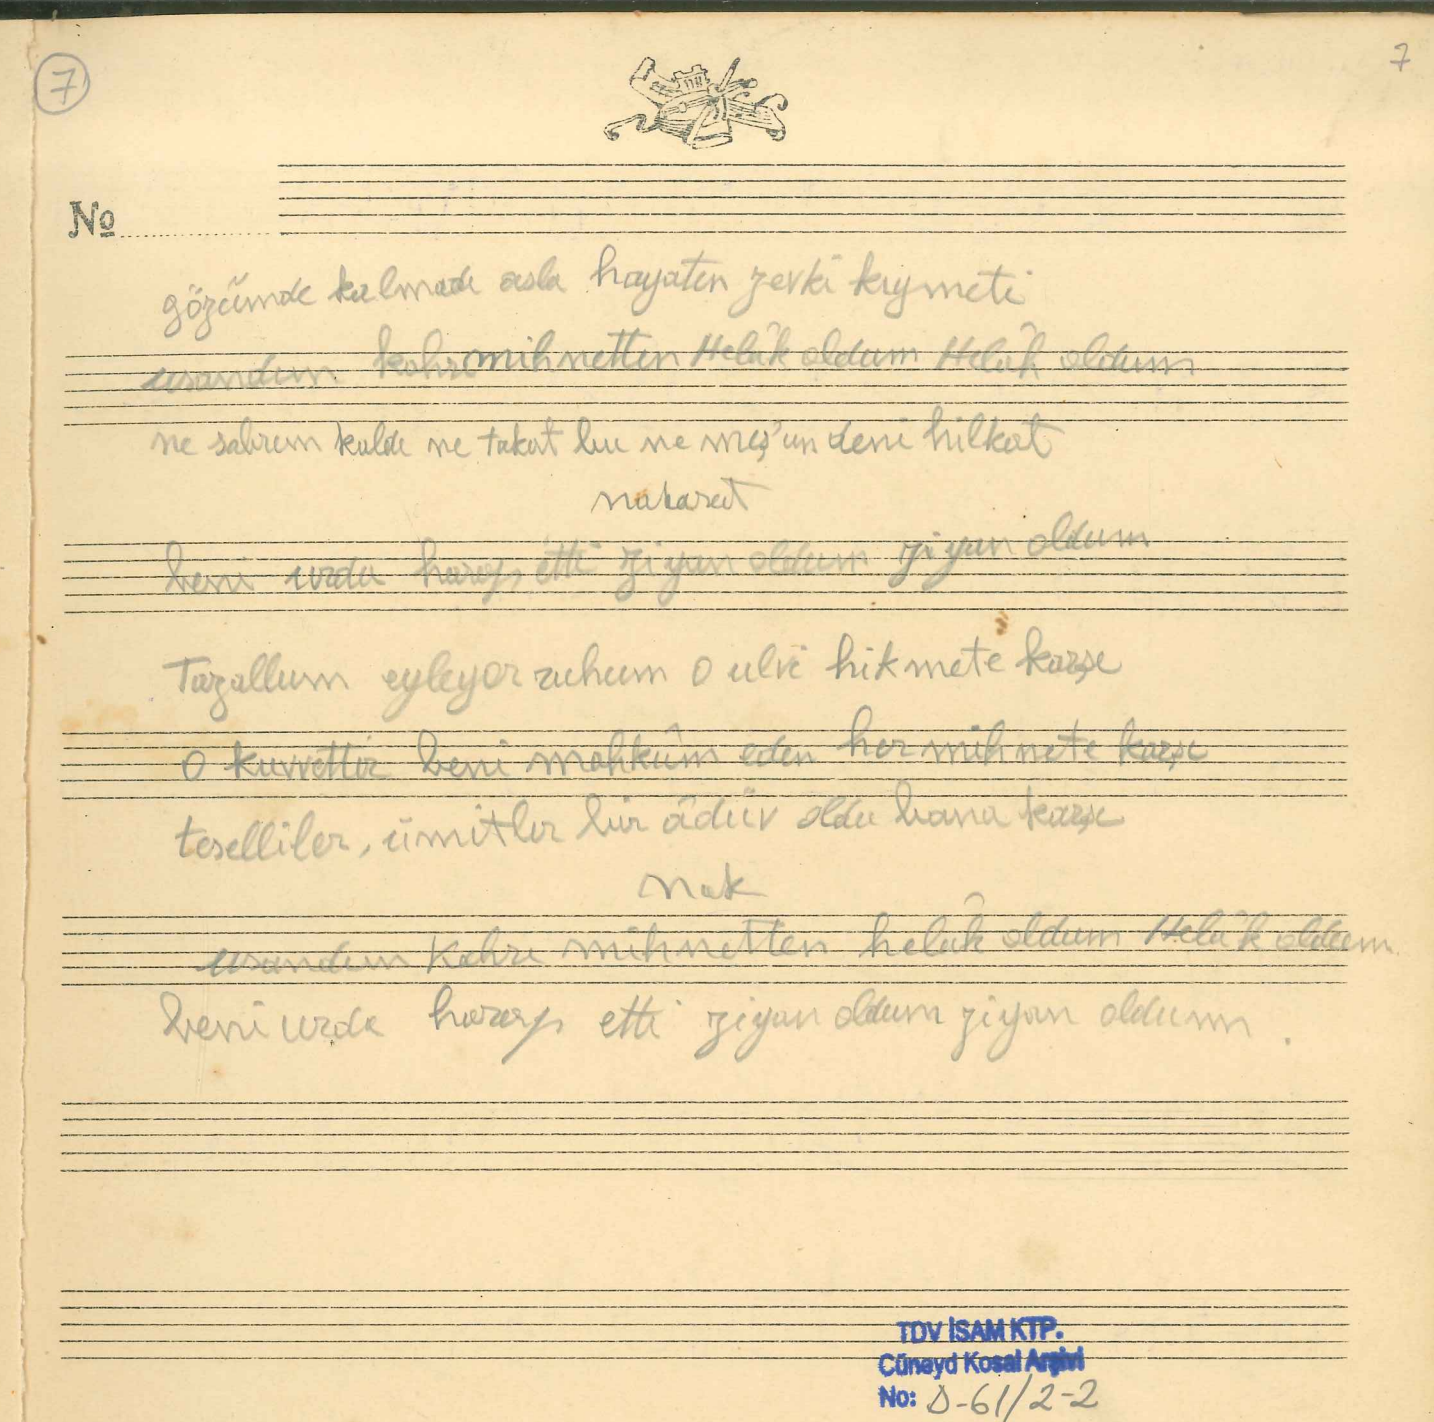 7
7
No
gözümde kalmadı asla hayatın zevki kıymeti
usandım kahrı mihnetten Helâk oldum Helâk oldum
ne sabrım kaldı ne takat bu ne meş'un deni hilkat
nakarat
beni urdu harap etti ziyan oldum ziyan oldum
Tazallum eyleyor ruhum o ulvi hikmete karşı
o kuvvettir beni mahkûm eden her mihnete karşı
teselliler, ümitler bir âdüv oldu bana karşı
nak
usandım Kahrı mihnetten helâk oldum Helâk oldum
beni urdu harap etti ziyan oldum ziyan oldum.
TDV İSAM KTP.
Cüneyd Kosal Arşivi
No: D-61/2-2